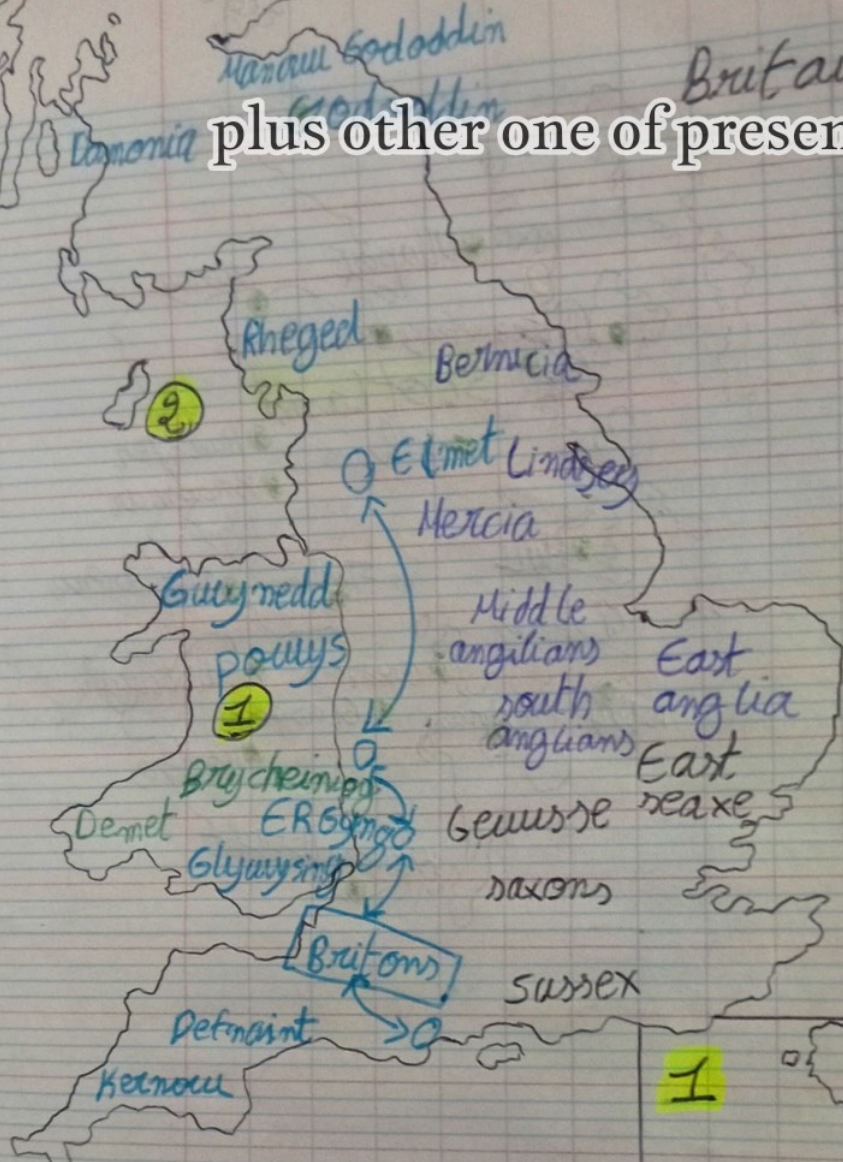 Manaw Gododdin
Britai
Gododdin
Damonia
plus other one of presen
Rheged
Bernicia
2
Elmet
Lindsey
Mercia
Gwynedd
Middle
angilians
powys
East
anglia
1
south
anglians
East
seaxe
Brycheiniog
Demet
ERGyng
Gewusse
Glywysing
saxons
Britons
Sussex
Defnaint
Kernow
1